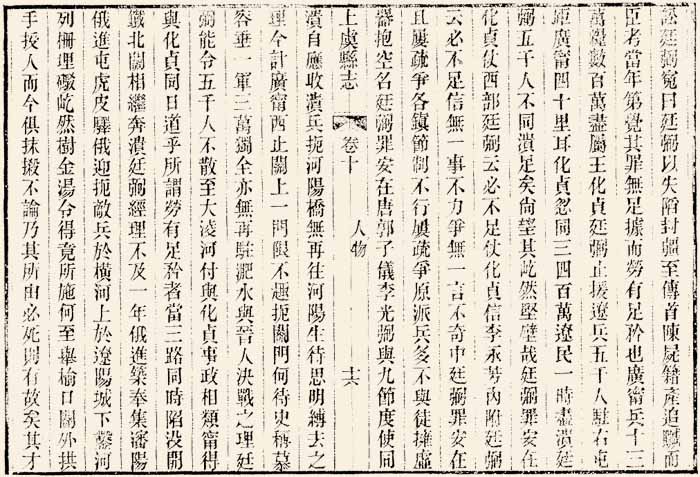 訟廷弼寃曰廷弼以失陷封疆至傳首陳屍籍產追贓而
臣考當年第覺其罪無足據而勞有足矜也廣甯兵十三
萬糧數百萬盡屬王化貞廷弼止援遼兵五千人駐右屯
距廣甯四十里耳化貞忽同三四百萬遼民一時盡潰廷
弼五千人不同潰足矣尙望其屹然堅壁哉廷弼罪安在
化貞仗西部廷弼云必不足仗化貞信李永芳內附廷弼
云必不足信無一事不力爭無一言不奇中廷弼罪安在
且屢疏爭各鎮節制不行屢疏爭原派兵多不與徒擁虛
器抱空名廷弼罪安在唐郭子儀李光弼與九節度使同
上虞縣志 卷十 人物 十六
潰自應收潰兵扼河陽橋無再往河陽生待思明縛去之
理今計廣甯西止關上一門限不趣扼關門何待史稱慕
容垂一軍三萬獨全亦無再駐淝水與晉人決戰之理廷
弼能令五千人不散至大淩河付與化貞事政相類甯得
與化貞同日道乎所謂勞有足矜者當三路同時陷没開
鐵北關相繼奔潰廷弼經理不及一年俄進築奉集瀋陽
俄進屯虎皮驛俄迎扼敵兵於橫河上於遼陽城下鑿河
列栅埋礮屹然樹金湯令得竟所施何至舉榆口關外拱
手授人而今俱抹摋不論乃其所由必死則有故矣其才